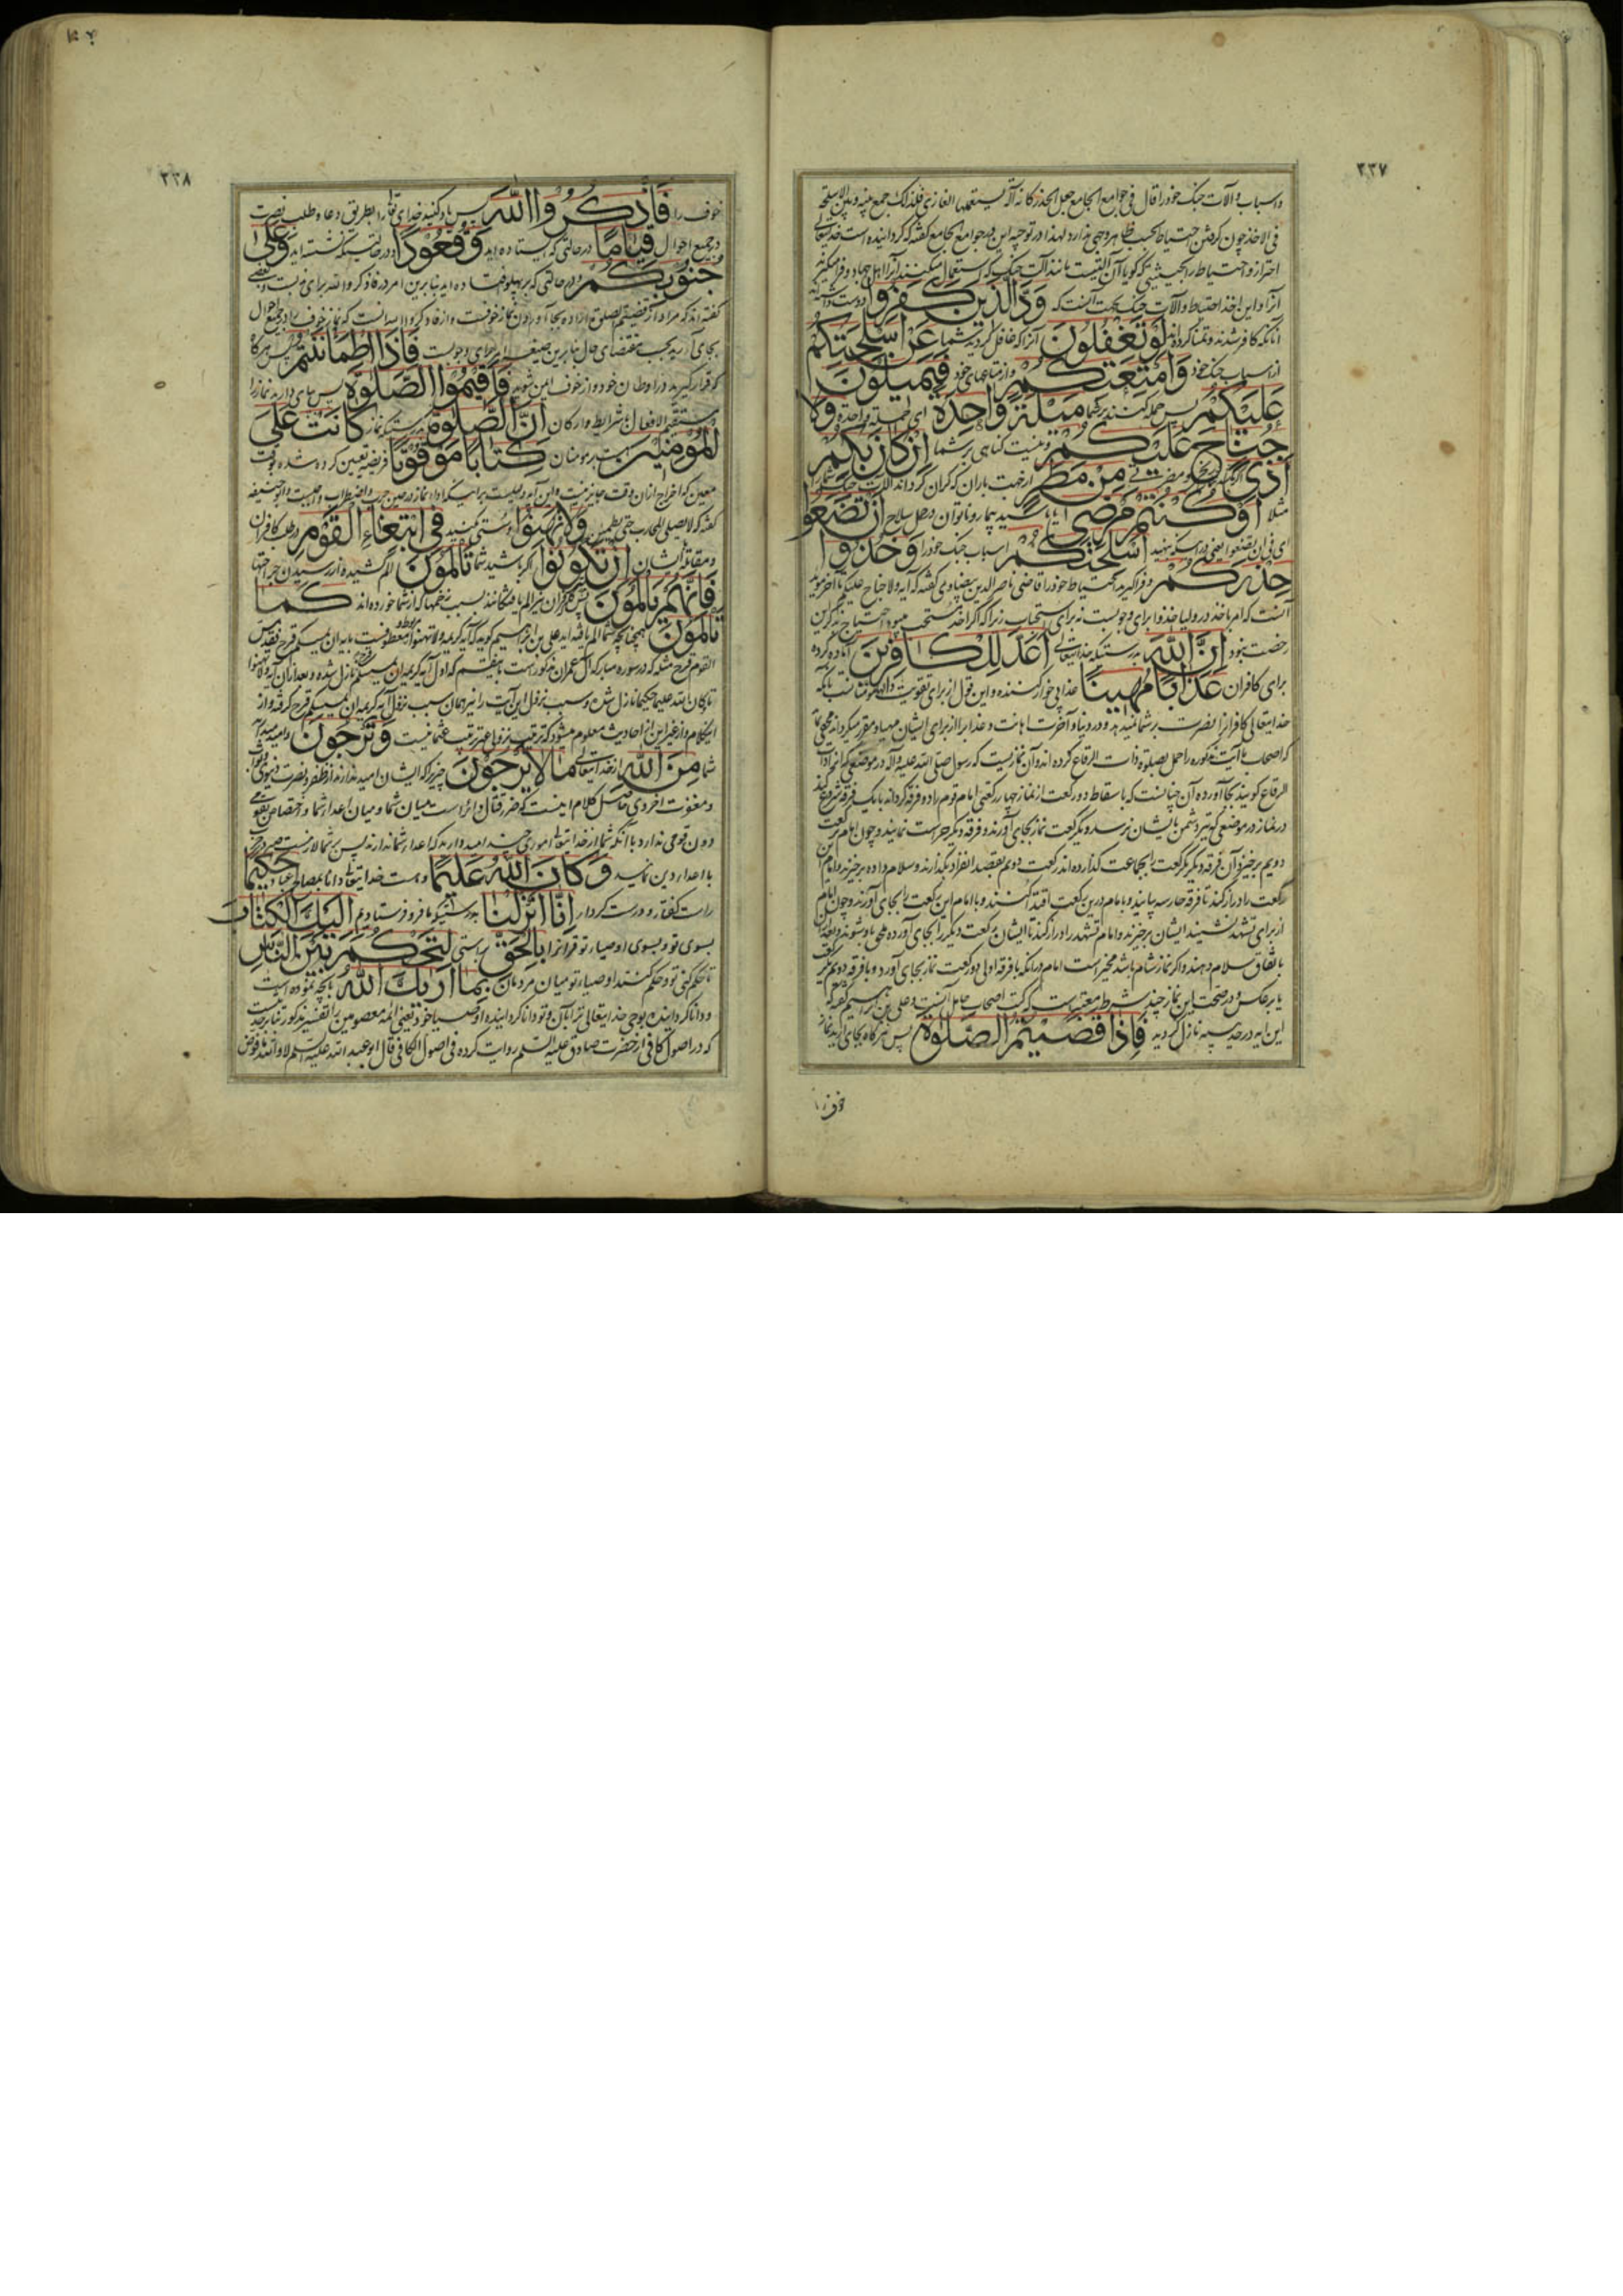 ۲۳۷
و اسباب و آلات جنک خود را قال فی جوامع الجامع جعل الحذر کانه آلة یستعملها الغازی فلذلک جمع بینه و بین الاسلحة
فی الاخذ چون کرفتن احتیاط بحسب ظاهر وجهی ندارد لهذا در توجیه این در جوامع الجامع کفته که کردانیده است خدایتعالی
احتراز و احتیاط را بحیثیتی که کویا آن آلتیست مانند آلت جنک که استعمال میکنند آنرا اهل جهاد و فرا میکیرند
آنرا و این اخذ احتیاط و آلات جنک بجهت آنست که وَدَّ الَّذِینَ کَفَرُوا دوست داشتند
آنانکه کافر شدند و تمنا کردند لَوْ تَغْفُلُونَ آنرا که غافل کردید شما عَنْ اَسْلِحَتِکُمْ
از اسباب جنک خود وَ اَمْتِعَتِکُمْ و از متاعهای خود فَیَمِیلُونَ
عَلَیْکُمْ پس حمله کنند بر شما مَیْلَةً وَاحِدَةً ای حملة واحدة وَلَا
جُنَاحَ عَلَیْکُمْ و نیست کناهی بر شما اِنْ کَانَ بِکُمْ
اَذًی اکر باشد بشما رنجی و مضرتی مِنْ مَطَرٍ از جهت باران که کران کرداند آلات جنک شما را
مثلا اَوْ کُنْتُمْ مَرْضَی یا باشید بیمار و ناتوان در حمل سلاح اَنْ تَضَعُوا
ای فی ان تضعوا یعنی در آنکه بنهید اَسْلِحَتَکُمْ اسباب جنک خود را وَ خُذُوا
حِذْرَکُمْ و فرا کیرید احتیاط خود را قاضی ناصر الدین بیضاوی کفته که آیه ولا جناح علیکم تا آخر موید
آنست که امر باخذ در ولیاخذوا برای وجوبست نه برای استحباب زیرا که اکر اخذ مستحب میبود احتیاج بذکر این
رخصت نبود اِنَّ اللهَ بدرستیکه خدایتعالی اَعَدَّ لِلْکَافِرِینَ آماده کرده
برای کافران عَذَابًا مُهِینًا عذابی خوار کننده و این قول از برای تقویت دلهای مؤمنانست بآنکه
خدایتعالی کافرانرا نصرت بر شما نمیدهد و در دنیا و آخرت اهانت و عذاب را از برای ایشان مهیا و مقرر میکرداند مخفی نماند
که اصحاب ما آیت مذکوره را حمل بصلوة ذات الرقاع کرده اند و آن نمازیست که رسول صلی الله علیه و آله در موضعی که آنرا ذات
الرقاع کویند بجا آورده و آن چنانست که باسقاط دو رکعت از نماز چهار رکعتی امام قوم را دو فرقه کرداند با یک فرقه شروع کند
در نماز در موضعی که تیر دشمن بایشان نرسد و یکرکعت نماز بجای آورند و فرقه دیکر حراست نمایند و چون امام برکعت
دویم برخیزد آن فرقه دیکر که یکرکعت را بجماعت کذارده اند رکعت دویم بقصد انفراد بکذارند و سلام داده برخیزند و امام این
رکعت را دراز کند تا فرقه حارسه بیایند و با امام درین رکعت اقتدا کنند و با امام این رکعت را بجای آورند و چون امام
از برای تشهد نشیند ایشان برخیزند و امام تشهد را دراز کند تا ایشان رکعت دیکر را بجای آورده ملحق باو شوند و بعد از آن
باتفاق سلام دهند و اکر نماز شام باشد مخیر است امام در آنکه با فرقه اولی دو رکعت نماز بجای آورد و با فرقه دویم یکرکعت
یا برعکس و در صحت این نماز چند شرط معتبر است که کتب اصحاب حامل آنست و علی بن ابراهیم کفته که
این آیه در حدیبیه نازل کردیده فَاِذَا قَضَیْتُمُ الصَّلٰوةَ پس هرکاه بجای آرید نماز
خوف را
۲۳۸
خوف را فَاذْکُرُوا اللهَ پس یاد کنید خدای تعالی را بطریق دعا و طلب نصرت
در جمیع احوال قِیَامًا در حالتی که ایستاده اید وَ قُعُودًا و در حالتیکه نشسته اید وَ عَلٰی
جُنُوبِکُمْ و در حالتی که بر پهلو افتاده اید بنابرین امر در فاذکروا الله برای ندبست و بعضی
کفته اند که مراد از قضیتم الصلوة اراده بجا آوردن نماز خوفست و از فاذکروا الله آنست که نماز خوف را در جمیع احوال
بجای آرید بحسب مقتضای حال بنابرین صیغه امر برای وجوبست فَاِذَا اطْمَاْنَنْتُمْ پس هرکاه
که قرار کیرید در اوطان خود و از خوف ایمن شوید فَاَقِیمُوا الصَّلٰوةَ پس بپای دارید نماز را
مستقیم الافعال بشرایط و ارکان اِنَّ الصَّلٰوةَ بدرستیکه نماز کَانَتْ عَلَی
الْمُؤْمِنِینَ است بر مومنان کِتَابًا مَوْقُوتًا فریضه تعیین کرده شده بوقت
معین که اخراج آن از آن وقت جایز نیست و این آیه دلیلست بر اینکه ادای نماز در حین حرب و اضطراب واجبست و ابو حنیفه
کفته که لا یصلی المحارب حتی یطمئن وَلَا تَهِنُوا و سستی مکنید فِی ابْتِغَاءِ الْقَوْمِ در طلب کافران
و مقاتله ایشان اِنْ تَکُونُوا اکر باشید شما تَاْلَمُونَ الم کشیده از رسیدن جراحتها
فَاِنَّهُمْ یَاْلَمُونَ پس کافران نیز الم یافتکانند بسبب زخمها که از شما خورده اند کَمَا
تَاْلَمُونَ همچنانچه شما الم یافته اید علی بن ابراهیم کوید که آیه کریمه ولا تهنوا معطوفست بآیه ان یمسسکم قرح فقد مس
القوم قرح مثله که در سوره مبارکه آل عمران مذکور است
تا وکان الله علیما حکیما نازل شده و سبب نزول این آیت را نیز همان سبب نزول آیه کریمه ان یمسسکم قرح کرفته و از
اینکلام و از غیر این از احادیث معلوم میشود که ترتیب نزولی غیر ترتیب عثمانیست وَ تَرْجُونَ و امید میدارید
شما مِنَ اللهِ از خدایتعالی مَا لَا یَرْجُونَ چیزیرا که ایشان امید ندارند از ظفر و نصرت دنیوی و ثواب
و مغفرت اخروی حاصل کلام اینست که ضرر قتال دائر است میان شما و میان اعداء شما و اختصاص بقومی
دون قومی ندارد با آنکه شما از خدایتعالی اموری چند امیدوارید که اعداء شما ندارند پس بر شما لازمست صبر در حرب
با اعداء دین نمایید وَ کَانَ اللهُ عَلِیمًا و هست خدایتعالی دانا بمصالح عباد حَکِیمًا
راست کفتار و درست کردار اِنَّا اَنْزَلْنَا بدرستیکه ما فرو فرستادیم اِلَیْکَ الْکِتَابَ
بسوی تو و بسوی اوصیاء تو قرآنرا بِالْحَقِّ براستی لِتَحْکُمَ بَیْنَ النَّاسِ
تا حکم کنی تو و حکم کنند اوصیاء تو میان مردمان بِمَا اَرٰیکَ اللهُ بآنچه نموده است
و دانا کردانیده بوحی خدایتعالی ترا بآن و تو دانا کردانیده اوصیاء خود یعنی ائمه معصومین را تفسیر مذکور بنابر حدیثیست
که در اصول کافی از حضرت صادق علیه السلم روایت کرده فی اصول الکافی قال ابو عبد الله علیه السلم لا والله ما فوض